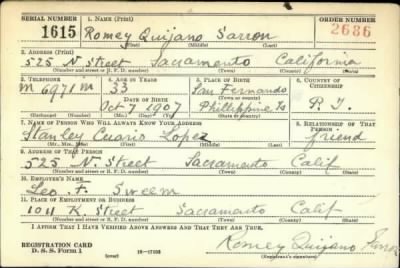 SERIAL NUMBER 1. NAME (Print) ORDER NUMBER
1615 Romey Quijano Sarron 2686
(First) (Middle) (Last)
2. ADDRESS (Print)
525 N Street Sacramento California
(Number and street or R. F. D. number) (Town) (County) (State)
3. TELEPHONE 4. AGE IN YEARS 5. PLACE OF BIRTH 6. COUNTRY OF CITIZENSHIP
M 6971 M 33 San Fernando
DATE OF BIRTH (Town or county)
Oct 7 1907 Phillippine Is P I
(Exchange) (Number) (Mo.) (Day) (Yr.) (State or country)
7. NAME OF PERSON WHO WILL ALWAYS KNOW YOUR ADDRESS 8. RELATIONSHIP OF THAT PERSON
Stanley Lopez friend
(Mr., Mrs., Miss) (First) (Middle) (Last)
9. ADDRESS OF THAT PERSON
525 N. Street Sacramento Calif
(Number and street or R. F. D. number) (Town) (County) (State)
10. EMPLOYER'S NAME
Leo F. Sweem
11. PLACE OF EMPLOYMENT OR BUSINESS
1011 K. Street Sacramento Calif
(Number and street or R. F. D. number) (Town) (County) (State)
I AFFIRM THAT I HAVE VERIFIED ABOVE ANSWERS AND THAT THEY ARE TRUE.
REGISTRATION CARD Romey Quijano
D. S. S. Form 1 (Registrant's signature)